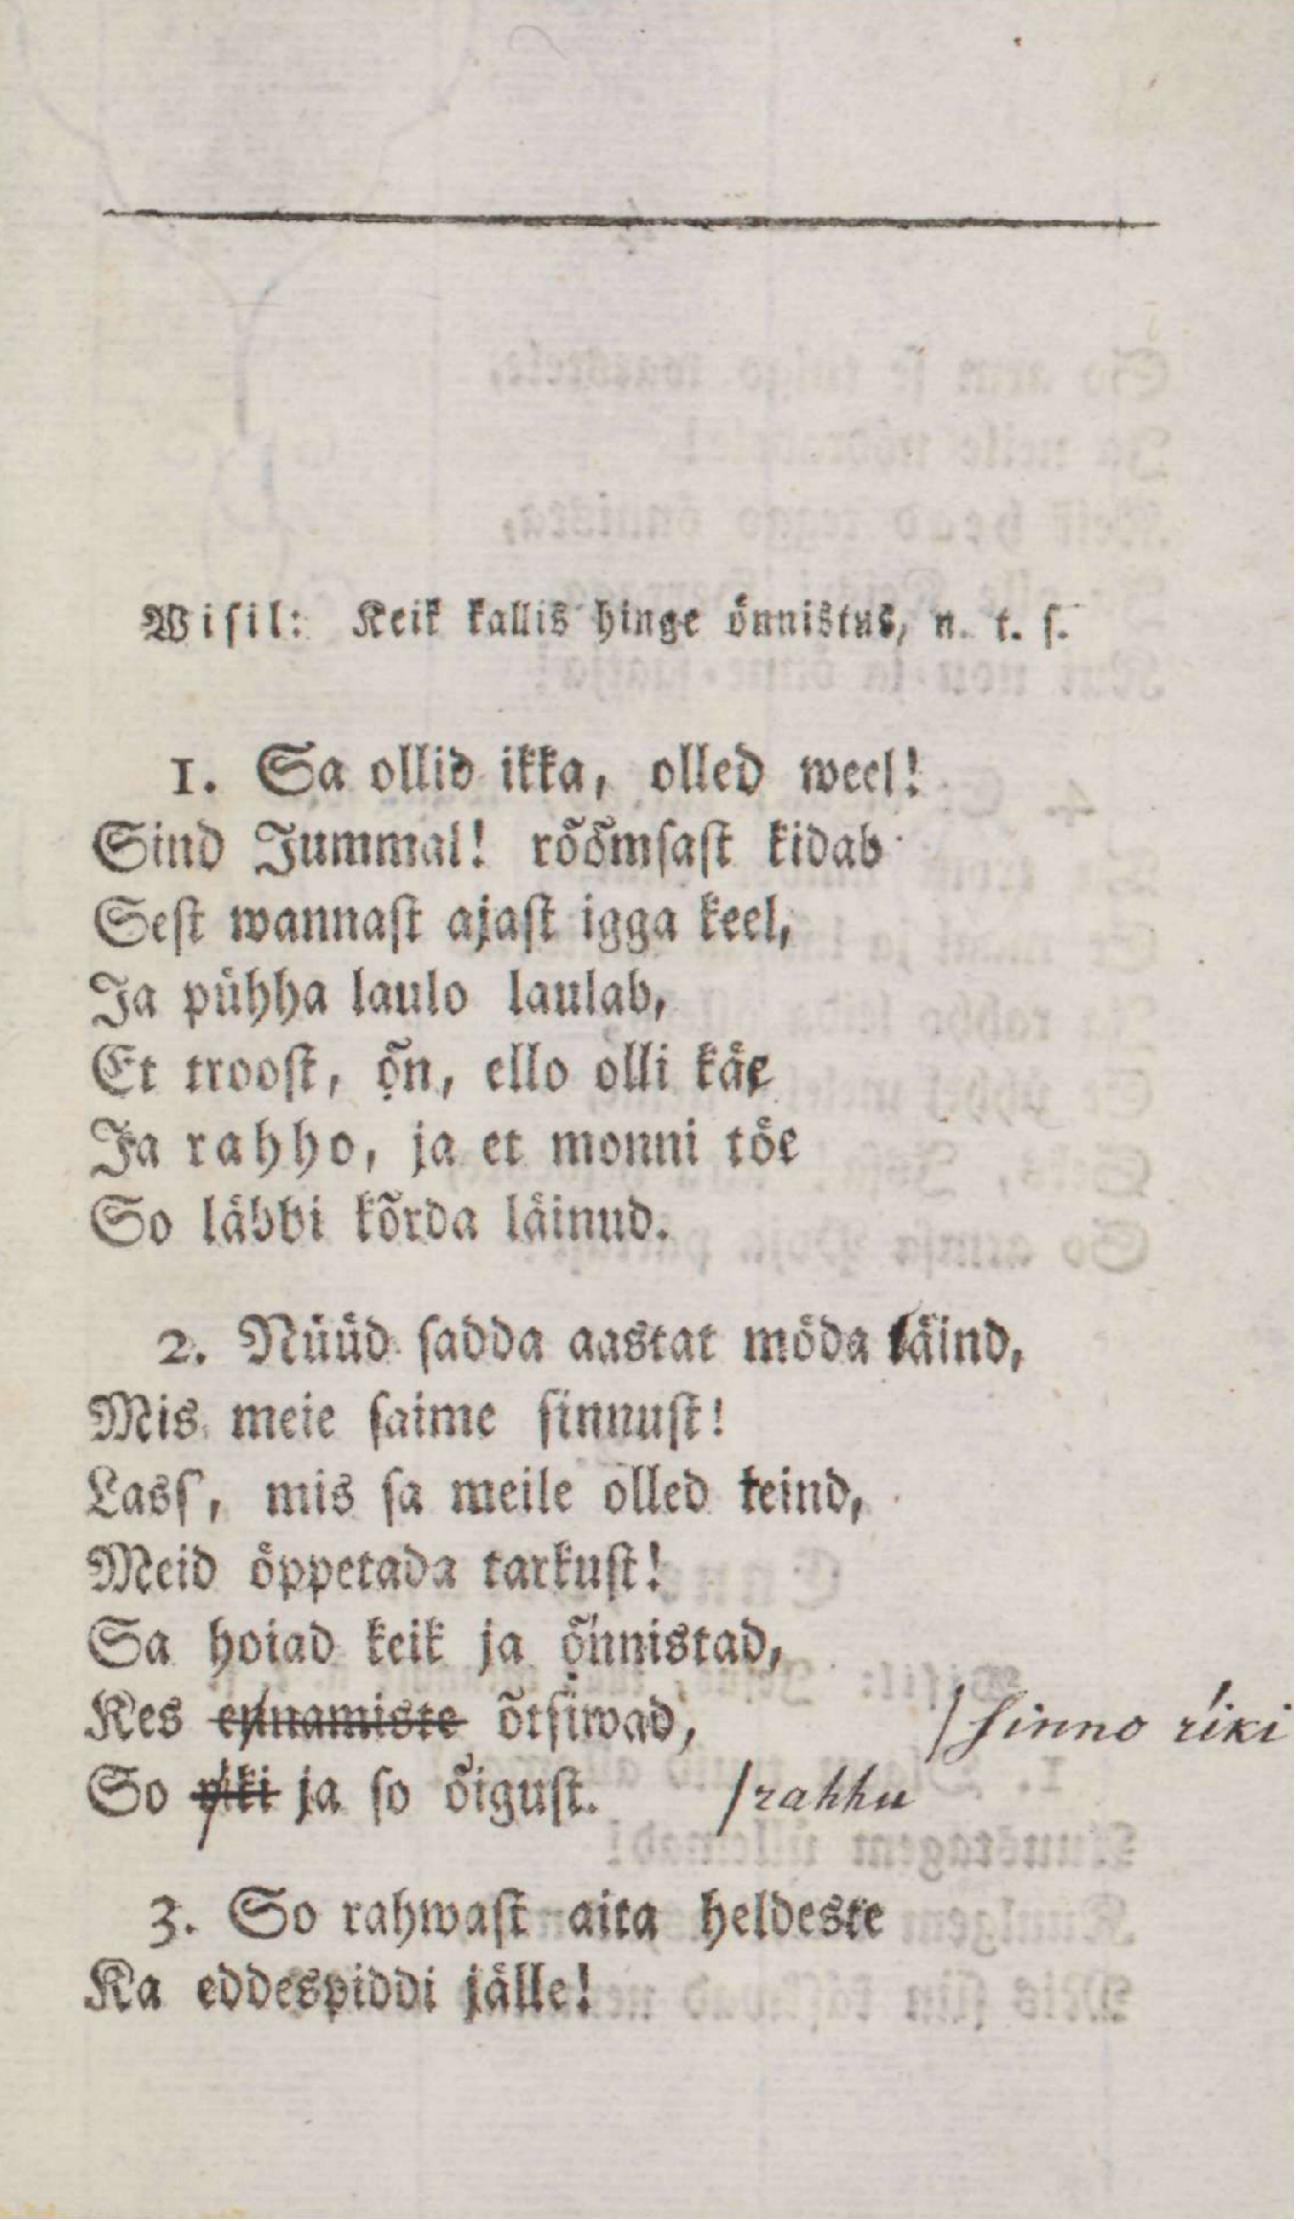 Wisil: Keik kallis hinge önnistus, n. t. s.
1. Sa ollid ikka, olled weel!
Sind Jummal! röömsast kidab
Sest wannast ajast igga keel,
Ja pühha laulo laulab,
Et troost, õn, ello olli käe
Ja rahho, ja et monni töe
So läbbi kõrda läinud.
2. Nüüd sadda aastat möda läind,
Mis meie saime sinnust!
Lass', mis sa meile olled teind,
Meid öppetada tarkust!
Sa hoiad keik ja õnnistad,
Kes ennamiste õtsiwad, sinno riki
So riki ja so öigust. rahhu
3. So rahwast aita heldeste
Ka eddespiddi jälle!